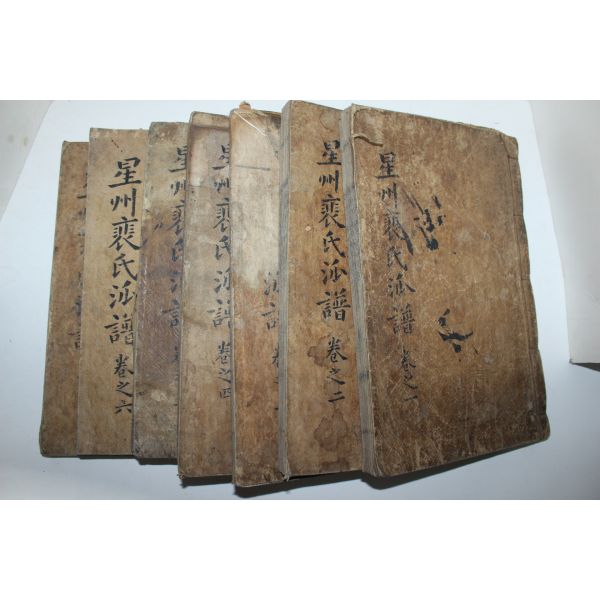 星州裵氏派譜 卷之一
星州裵氏派譜 卷之二
星州裵氏派譜 卷之四
星州裵氏派譜 卷之六